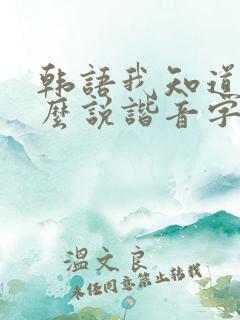 韩語我知道
麽說諧音字
溫文良
未经同意禁止转载